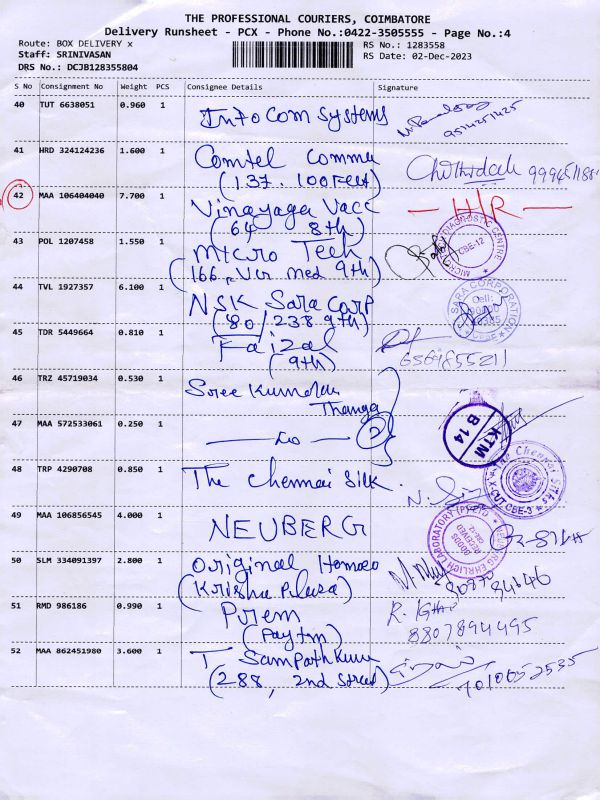 THE PROFESSIONAL COURIERS, COIMBATORE
Delivery Runsheet - PCX - Phone No.:0422-3505555 - Page No.:4
Route: BOX DELIVERY x
RS No.: 1283558
Staff: SRINIVASAN
RS Date: 02-Dec-2023
DRS No.: DCJB128355804
S No Consignment No Weight PCS Consignee Details Signature
40 TUT 6638051 0.960 1 InfoCom Systems
9514251425
41 HRD 324124236 1.600 1 Comtel Commu
(137. 100 Feet)
42 MAA 106404040 7.700 1 Vinayaga Vacc — H/R —
(64 8th)
43 POL 1207458 1.550 1 Micro Tech MICRO DIAGNOSTIC CENTRE CBE-12
(166, Vir med 9th)
44 TVL 1927357 6.100 1 NSK Sara Corp SARA CORPORATION Cell:
(80/238 9th)
45 TDR 5449664 0.810 1 Faizal
(9th)
46 TRZ 45719034 0.530 1 Sree Kumaran
Thanga
47 MAA 572533061 0.250 1 — Do — 2 KTM B 14
48 TRP 4290708 0.850 1 The Chennai Silk The Chennai Silks CBE-3
49 MAA 106856545 4.000 1 NEUBERG EHRLICH LABORATORY GOODS RECEIVED
50 SLM 334091397 2.800 1 Original Homoeo
(Krishna Pilusa)
51 RMD 986186 0.990 1 Prem
(Paytm) 8807894495
52 MAA 862451980 3.600 1 T Sampath Kum
(288, 2nd Street) 7010652535